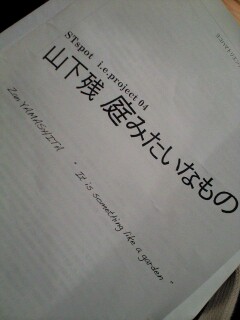 STspot i.e.project 04
山下残 庭みたいなもの
Zan YAMASHITA " It is something like a garden "